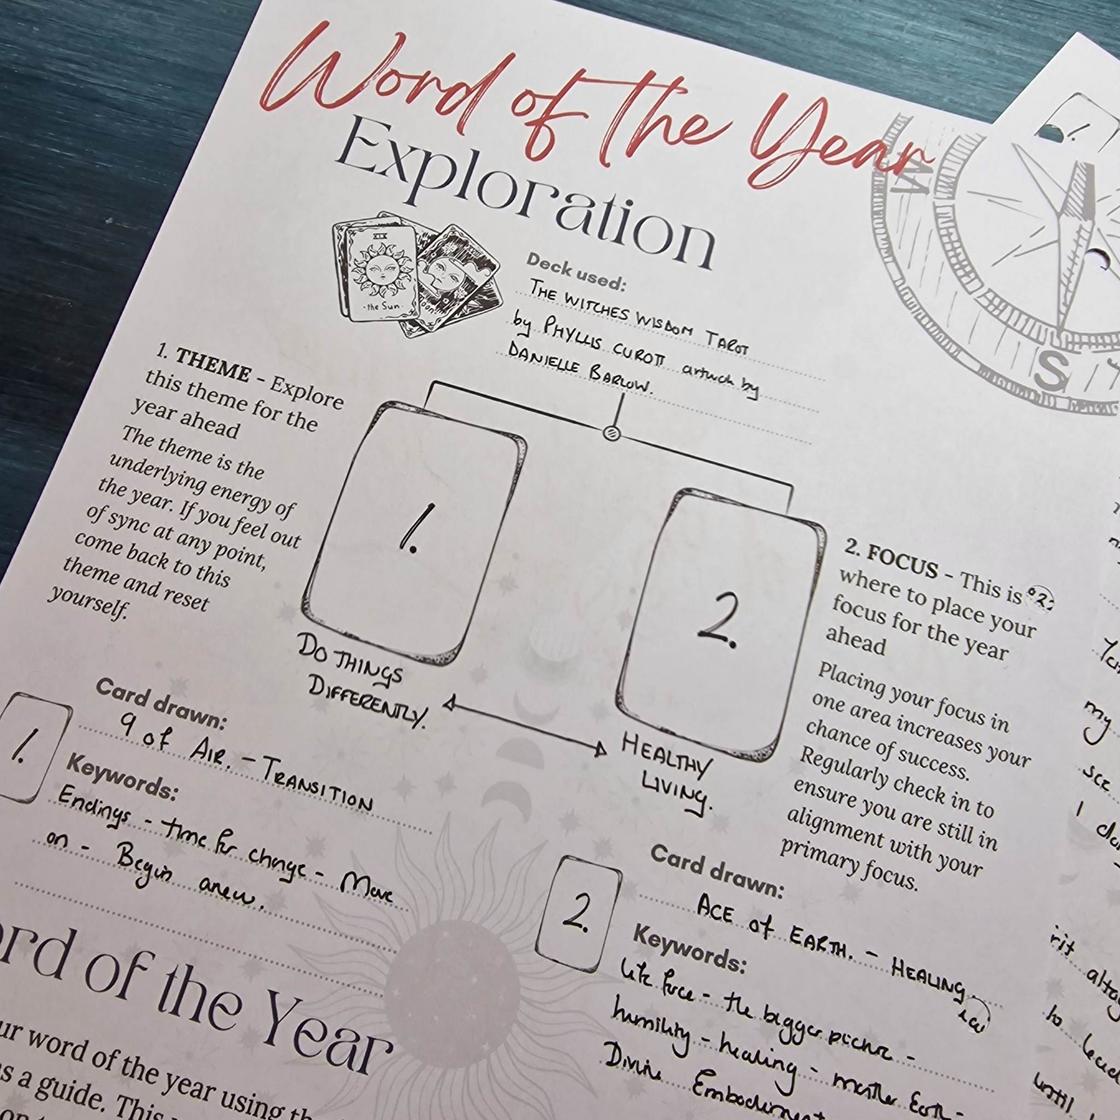 Word of the Year
Exploration
W
S
XIX
the Sun
Deck used:
THE WITCHES WISDOM TAROT
by PHYLLIS CUROTT artwork by
DANIELLE BARLOW.
1. THEME - Explore
this theme for the
year ahead
The theme is the
underlying energy of
the year. If you feel out
of sync at any point,
come back to this
theme and reset
yourself.
1.
2.
2. FOCUS - This is
where to place your
focus for the year
ahead
Placing your focus in
one area increases your
chance of success.
Regularly check in to
ensure you are still in
alignment with your
primary focus.
DO THINGS
DIFFERENTLY.
HEALTHY
LIVING.
1.
Card drawn:
9 of AIR. - TRANSITION
Keywords:
Endings - time for change - Move
on - Begin anew.
2.
Card drawn:
ACE of EARTH. - HEALING
Keywords:
life force - the bigger picture -
humility - healing - mother Earth
Divine Embodiment
Word of the Year
word of the year using
as a guide. This
my
I
to
until